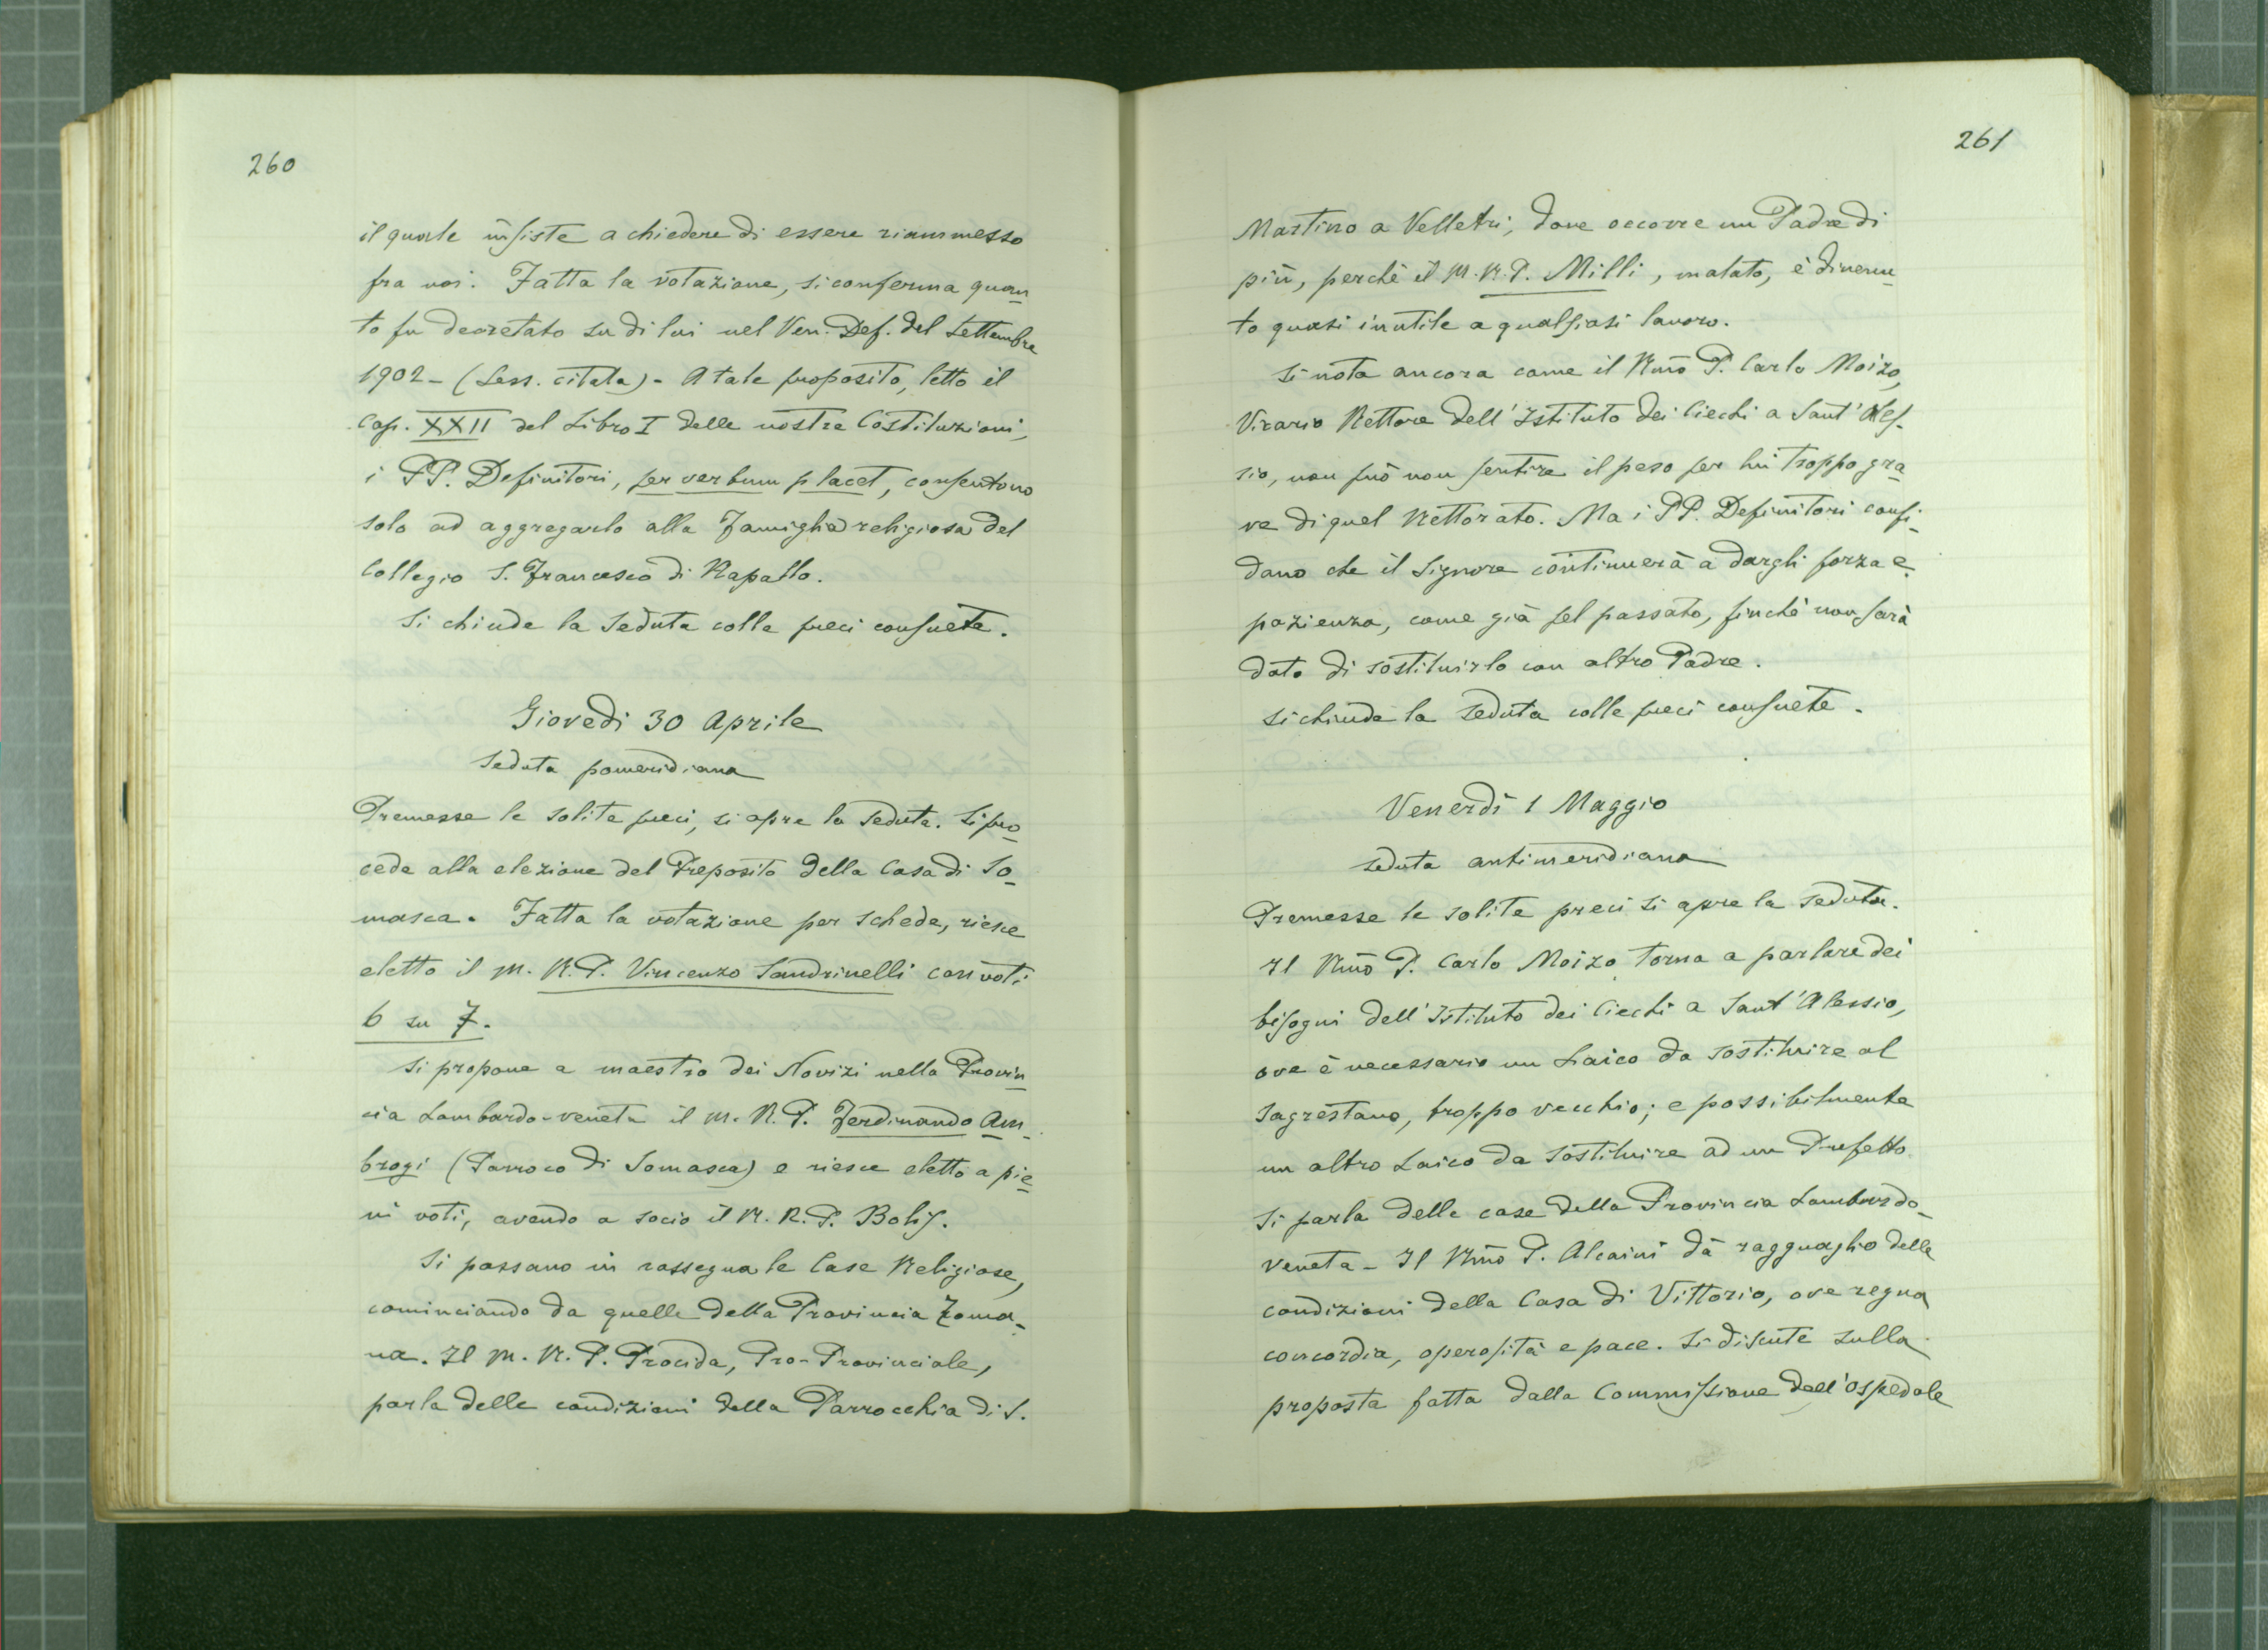 260
il quale insiste a chiedere di essere riammesso
fra noi. Fatta la votazione, si conferma quan-
to fu decretato su di lui nel Ven. Def. del Settembre
1902 - (Sess. citata) - A tale proposito, letto il
Cap. XXII del Libro I delle nostre Costituzioni,
i PP. Definitori, per verbum placet, consentono
solo ad aggregarlo alla Famiglia religiosa del
Collegio S. Francesco di Rapallo.
Si chiude la Seduta colle preci consuete.
Giovedì 30 Aprile
Seduta pomeridiana
Premesse le solite preci, si apre la Seduta. Si pro-
cede alla elezione del Preposito della Casa di So-
masca. Fatta la votazione per schede, riesce
eletto il M. R. P. Vincenzo Sandrinelli con voti
6 su 7.
Si propone a maestro dei Novizi nella Provin-
cia Lombardo-veneta il M. R. P. Ferdinando Am-
brogi (Parroco di Somasca) e riesce eletto a pie-
ni voti, avendo a socio il M. R. P. Bolis.
Si passano in rassegna le Case Religiose,
cominciando da quelle della Provincia Roma-
na. Il M. R. P. Procida, Pro-Provinciale,
parla delle condizioni della Parrocchia di S.
261
Martino a Velletri, dove occorre un Padre di
più, perchè il M. R. P. Milli, malato, è divenu-
to quasi inutile a qualsiasi lavoro.
Si nota ancora come il Rmo P. Carlo Moizo,
Vicario Rettore dell'Istituto dei Ciechi a Sant'Ales-
sio, non può non sentire il peso per lui troppo gra-
ve di quel Rettorato. Ma i PP. Definitori confi-
dano che il Signore continuerà a dargli forza e
pazienza, come già pel passato, finchè non sarà
dato di sostituirlo con altro Padre.
Si chiude la Seduta colle preci consuete.
Venerdì 1 Maggio
Seduta antimeridiana
Premesse le solite preci si apre la Seduta.
Il Rmo P. Carlo Moizo torna a parlare dei
bisogni dell'Istituto dei Ciechi a Sant'Alessio,
ove è necessario un Laico da sostituire al
Sagrestano, troppo vecchio; e possibilmente
un altro Laico da sostituire ad un Prefetto.
Si parla delle case della Provincia Lombardo-
veneta - Il Rmo P. Alcaini dà ragguaglio delle
condizioni della Casa di Vittorio, ove regna
concordia, operosità e pace. Si discute sulla
proposta fatta dalla Commissione dell'Ospedale